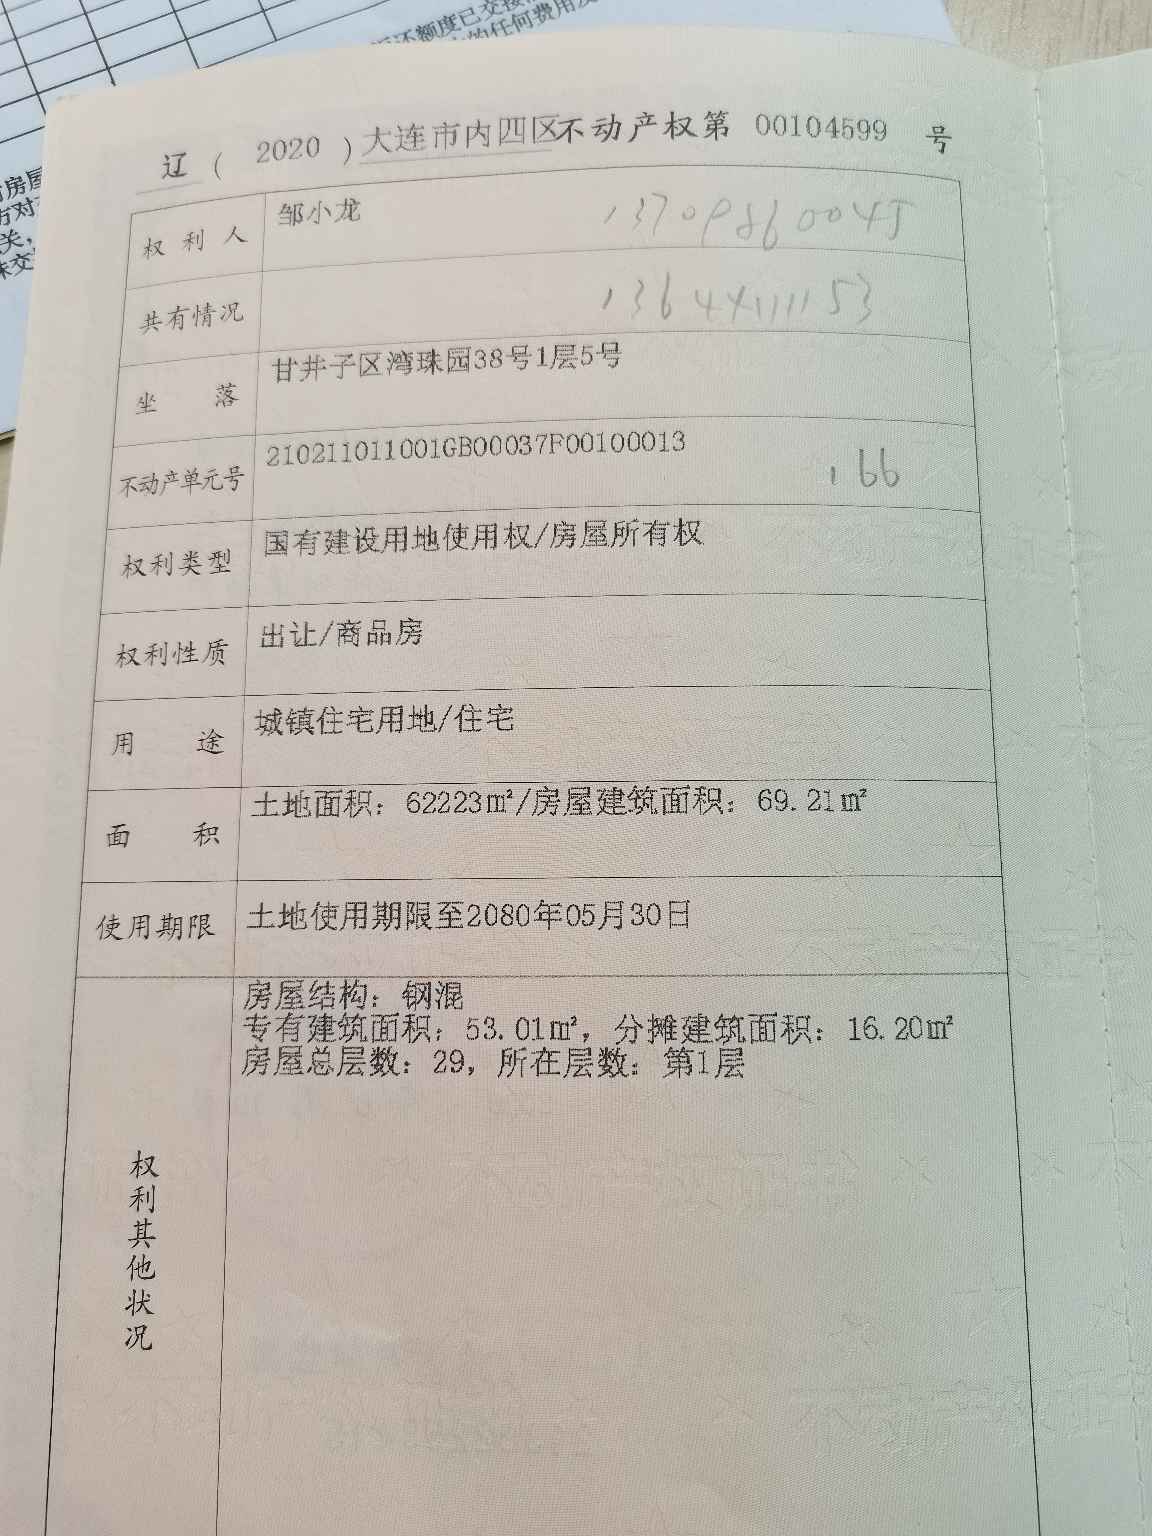 还额度已交接
的任何费用及
房屋
方对
关，
味交
辽（2020）大连市内四区不动产权第 00104599 号
权利人 邹小龙 13709860045
共有情况 13644111153
坐落 甘井子区湾珠园38号1层5号
不动产单元号 210211011001GB00037F00100013 166
权利类型 国有建设用地使用权/房屋所有权
权利性质 出让/商品房
用途 城镇住宅用地/住宅
面积 土地面积：62223㎡/房屋建筑面积：69.21㎡
使用期限 土地使用期限至2080年05月30日
权利其他状况
房屋结构：钢混
专有建筑面积：53.01㎡，分摊建筑面积：16.20㎡
房屋总层数：29，所在层数：第1层